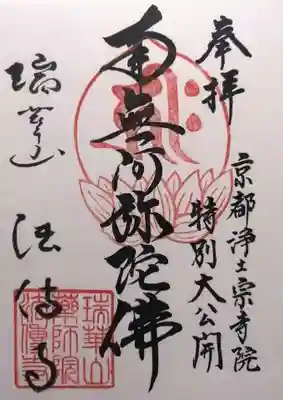 奉拝
京都浄土宗寺院
特別大公開
南無阿弥陀佛
瑞華山
法伝寺
瑞華山
薬師院
法傳寺